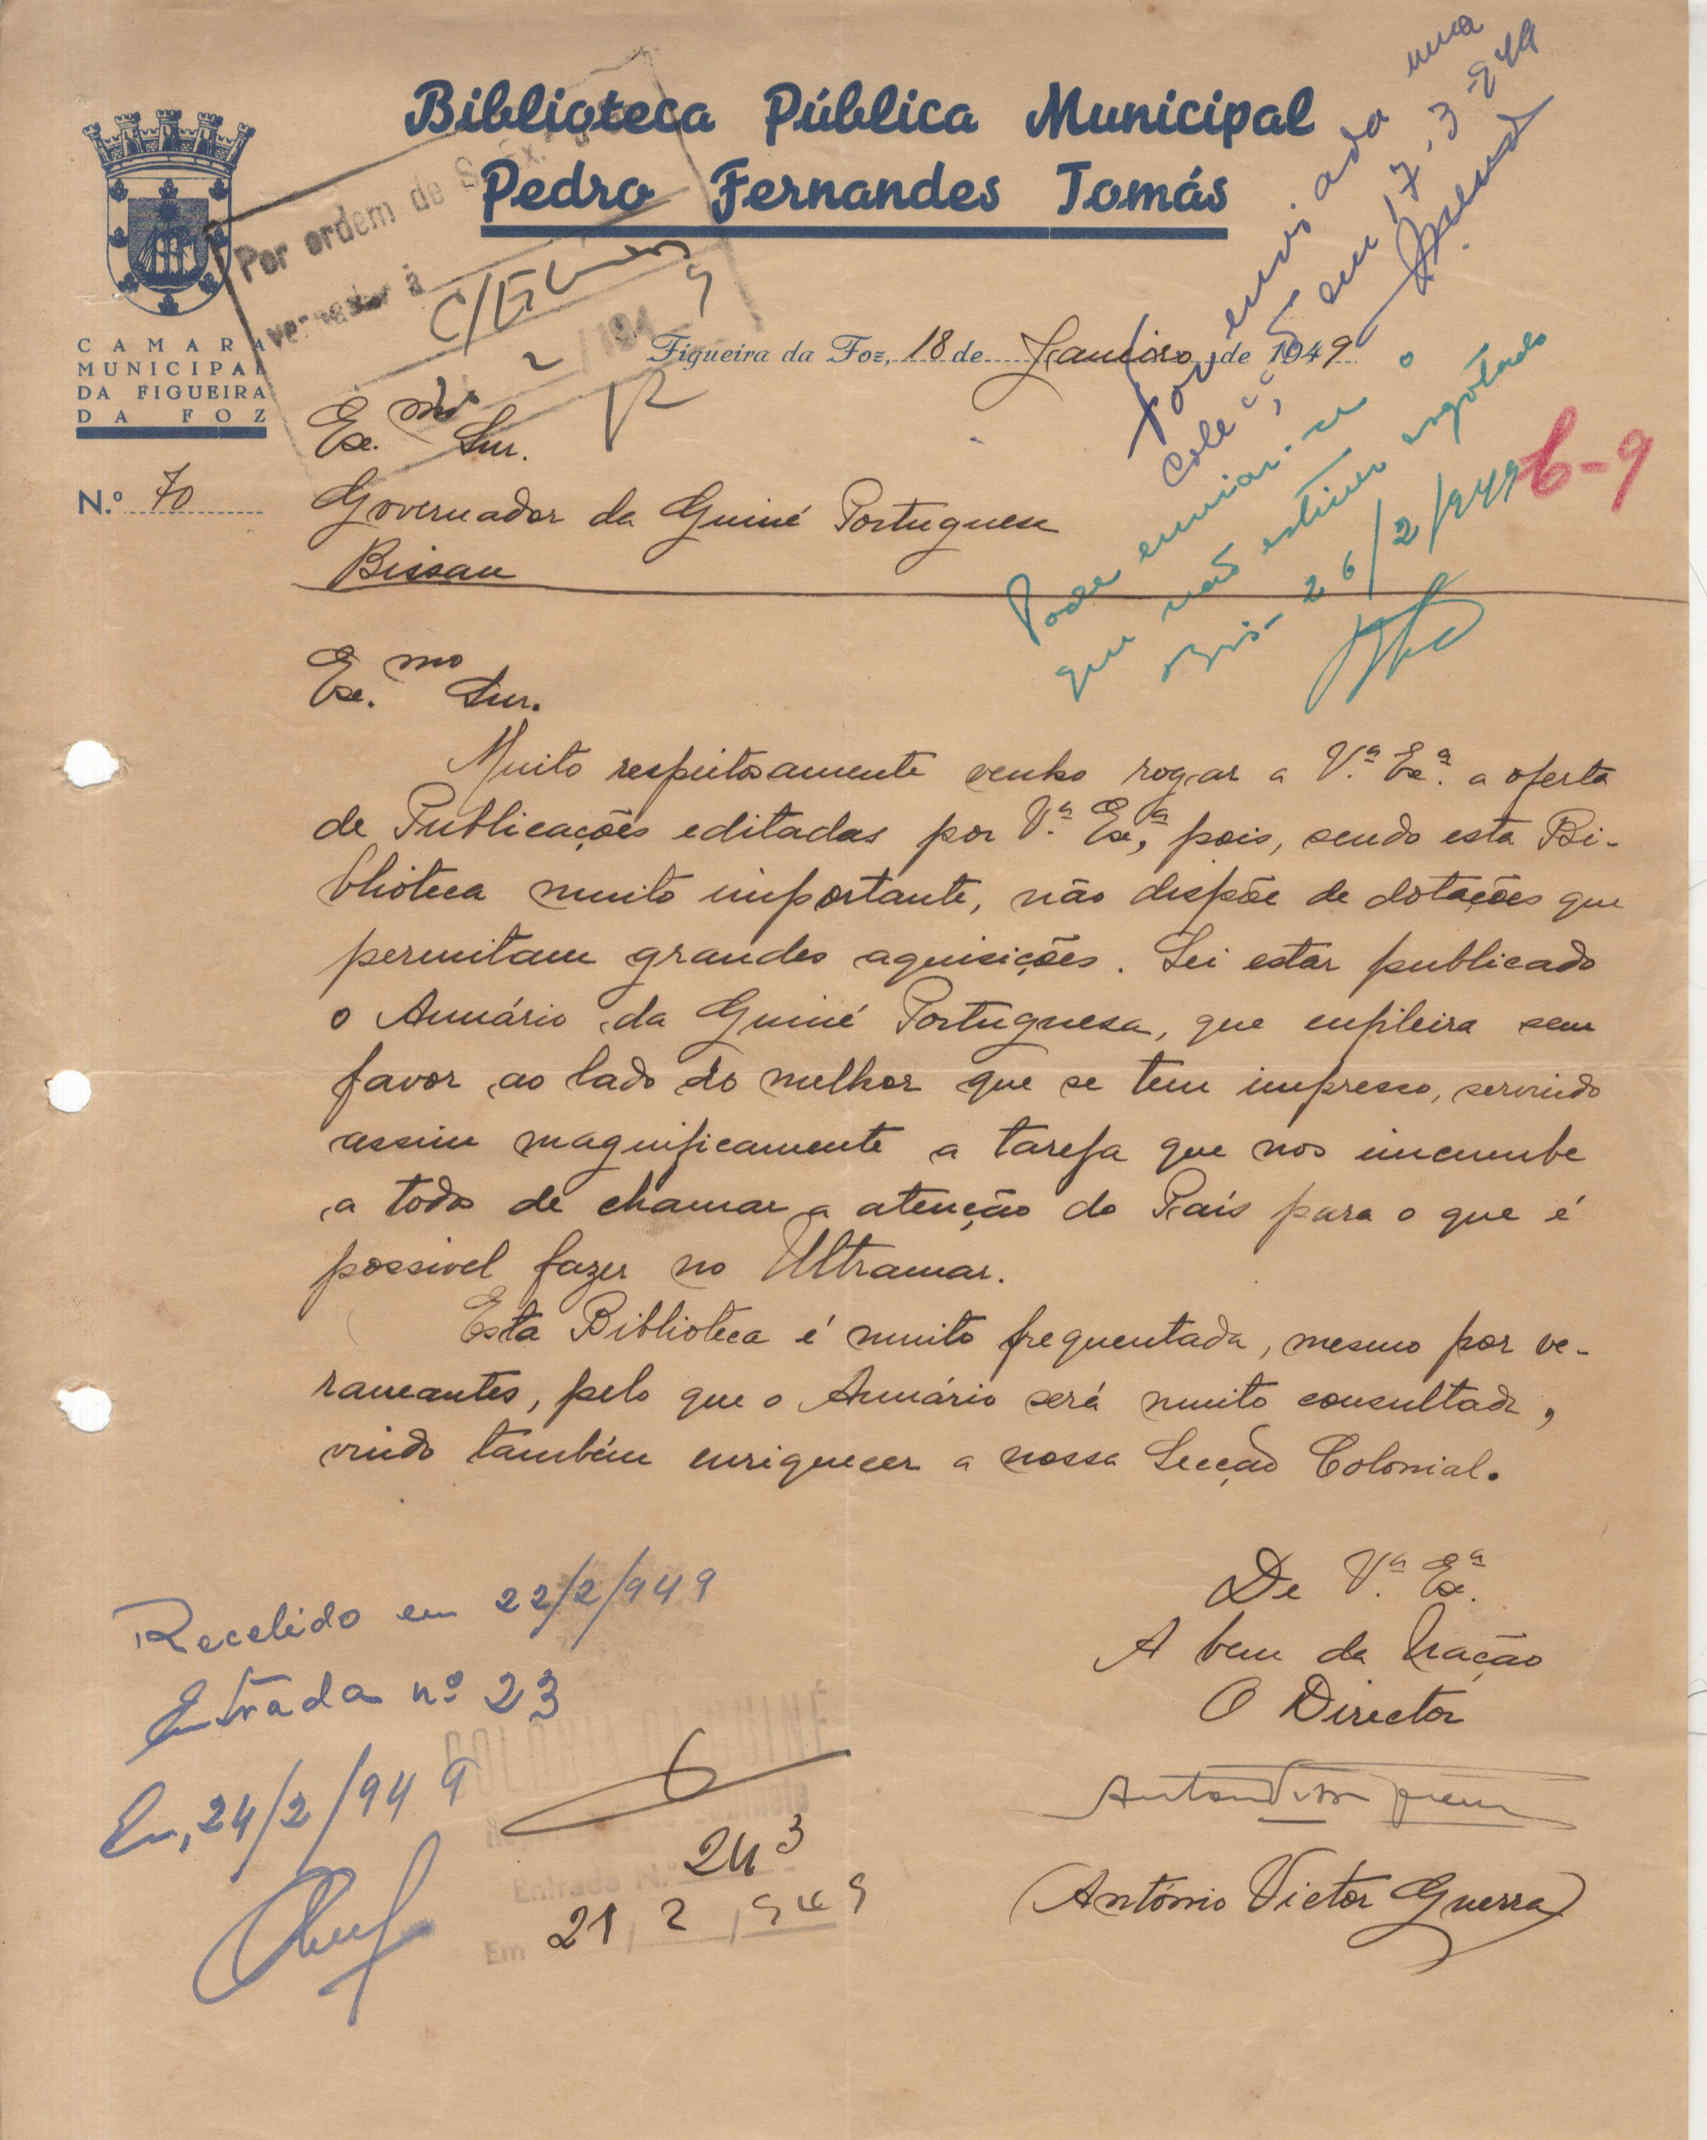 Biblioteca Pública Municipal
Pedro Fernandes Tomás
CAMARA
MUNICIPAL
DA FIGUEIRA
DA FOZ
Por ordem de S. Ex.
vernador à
Figueira da Foz, 18 de Janeiro de 1949
N.º 70
Foi enviada uma
colecç em 17-3-949
Pode enviar-se o
que não estiver esgotado
Bis- 26/2/949
6-9
Ex.mo Snr.
Governador da Guiné Portuguesa
Bissau
Ex.mo Snr.
Muito respeitosamente venho rogar a V.ª Ex.ª a oferta
de Publicações editadas por V.ª Ex.ª, pois, sendo esta Bi-
blioteca muito importante, não dispõe de dotações que
permitam grandes aquisições. Sei estar publicado
o Anuário da Guiné Portuguesa, que enfileira sem
favor ao lado do melhor que se tem impresso, servindo
assim magnificamente a tarefa que nos incumbe
a todos de chamar a atenção do País para o que é
possivel fazer no Ultramar.
Esta Biblioteca é muito frequentada, mesmo por ve-
raneantes, pelo que o Anuário será muito consultado,
vindo também enriquecer a nossa Secção Colonial.
De V.ª Ex.ª
A bem da Nação
O Director
(António Victor Guerra)
Recebido em 22/2/949
Entrada nº 23
Em, 24/2/949
Entrada N. 243
Em 21, 2, 949